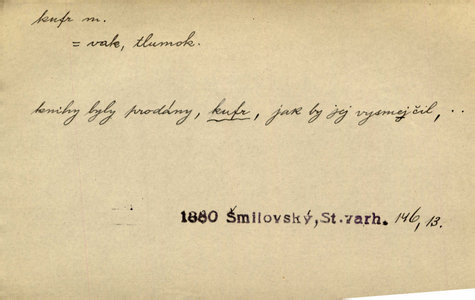 kufr m.
= vak, tlumok.
knihy byly prodány, kufr, jak by jej vysmejčil, ..
1880 Šmilovský, St. varh. 146, 13.